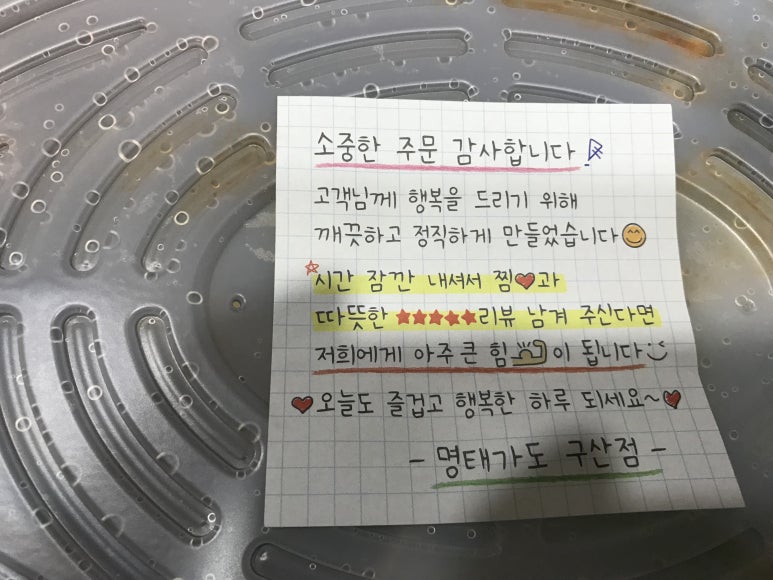 소중한 주문 감사합니다
고객님께 행복을 드리기 위해
깨끗하고 정직하게 만들었습니다😊
☆시간 잠깐 내셔서 찜♥과
따뜻한 ★★★★★리뷰 남겨 주신다면
저희에게 아주 큰 힘💪이 됩니다
♥오늘도 즐겁고 행복한 하루 되세요~♥
- 명태가도 구산점 -